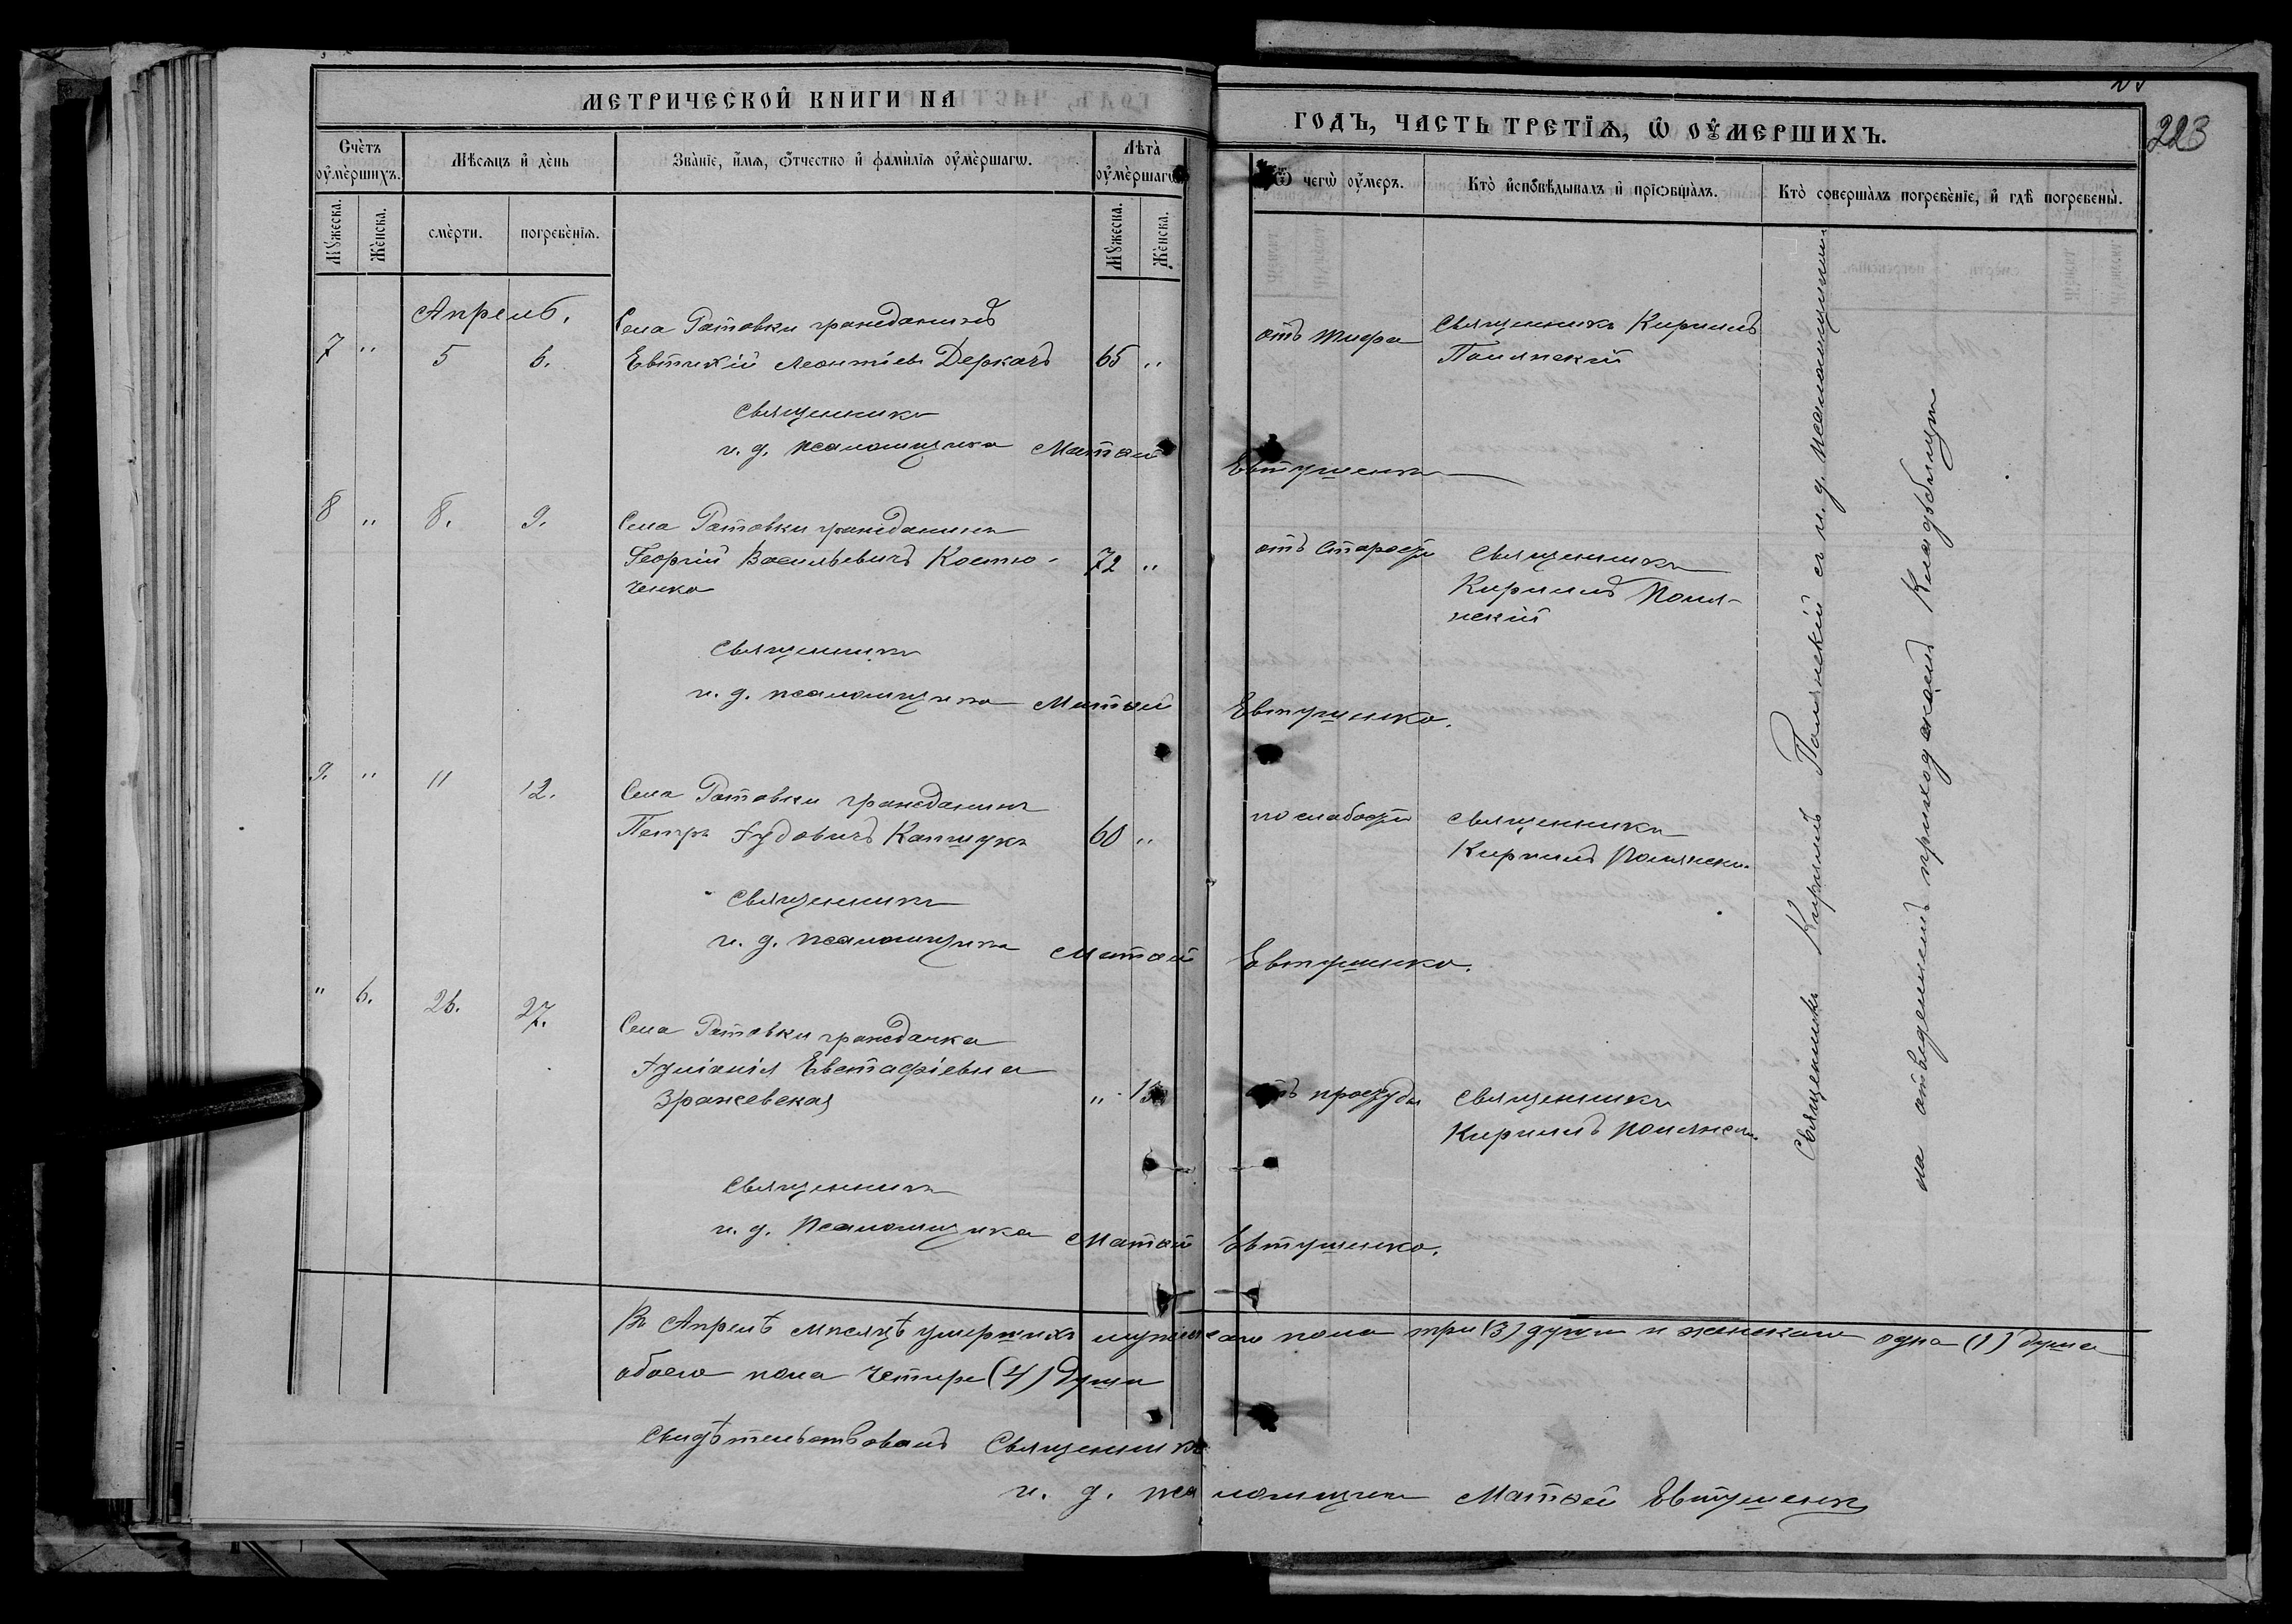 МЕТРИЧЕСКОЙ КНИГИ НА
ГОДЪ, ЧАСТЬ ТРЕТІѦ, Ѡ ОУМЕРШИХЪ.
223
Счетъ оумершихъ.
Мѣсяцъ и день
Званіе, имя, отчество и фамилія оумершагѡ.
Лѣта оумершагѡ
Ѿ чегѡ оумеръ.
Кто исповѣдывалъ и пріѡбщалъ.
Кто совершалъ погребеніе, и гдѣ погребены.
Мужеска.
Женска.
смерти.
погребенія.
Мужеска.
Женска.
Апрель.
7 " 5 6.
Села Ратовки гражданинъ
Евтихій Леонтіевъ Деркачъ 65 "
отъ тифа
Священникъ Кириллъ
Полянскій
Священникъ
и. д. псаломщика Матѳей Евтушенко
8 " 8. 9.
Села Ратовки гражданинъ
Георгій Васильевичъ Костю-
ченко
72 "
отъ старости
Священникъ
Кириллъ Поля-
нскій
Священникъ
и. д. псаломщика Матѳей Евтушенко.
9. " 11 12.
Села Ратовки гражданинъ
Петръ Іудовичъ Капшукъ 60 "
по слабости
Священникъ
Кириллъ Полянскі.
Священникъ
и. д. псаломщика Матѳей Евтушенко.
" 6. 26. 27.
Села Ратовки гражданка
Іуліанія Евстафіевна
Зражевская
"
отъ простуды
Священникъ
Кириллъ Полянскі.
Священникъ
и. д. псаломщика Матѳей Евтушенко.
Священникъ Кириллъ Полянскій съ и. д. псаломщикомъ
на отведенномъ прихожанъ Кладбищи
Въ Апрелѣ мѣсяцѣ умершихъ мужескаго пола три (3) души и женскаго одна (1) душа
обоего пола четыре (4) души
Свидѣтельствовалъ Священникъ
и. д. псаломщика Матѳей Евтушенко